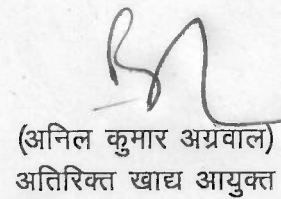 (अनिल कुमार अग्रवाल)
अतिरिक्त खाद्य आयुक्त